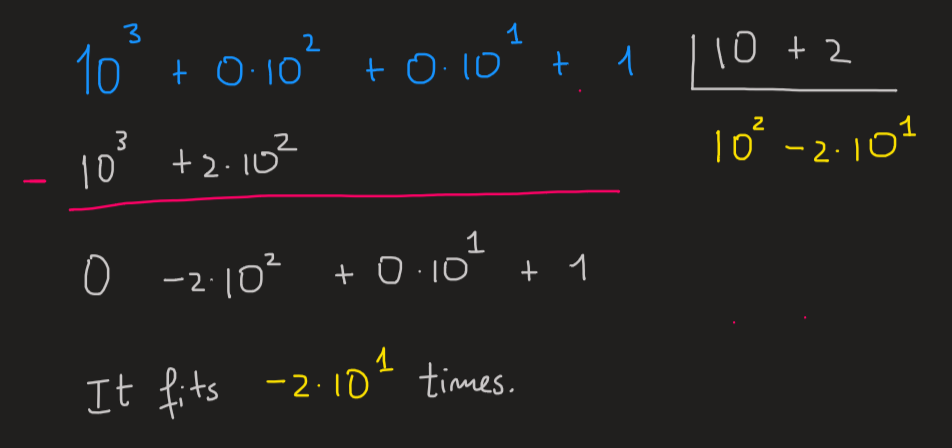 10³ + 0·10² + 0·10¹ + 1 | 10 + 2
10² -2·10¹
- 10³ +2·10²
0 -2·10² + 0·10¹ + 1
It fits -2·10¹ times.